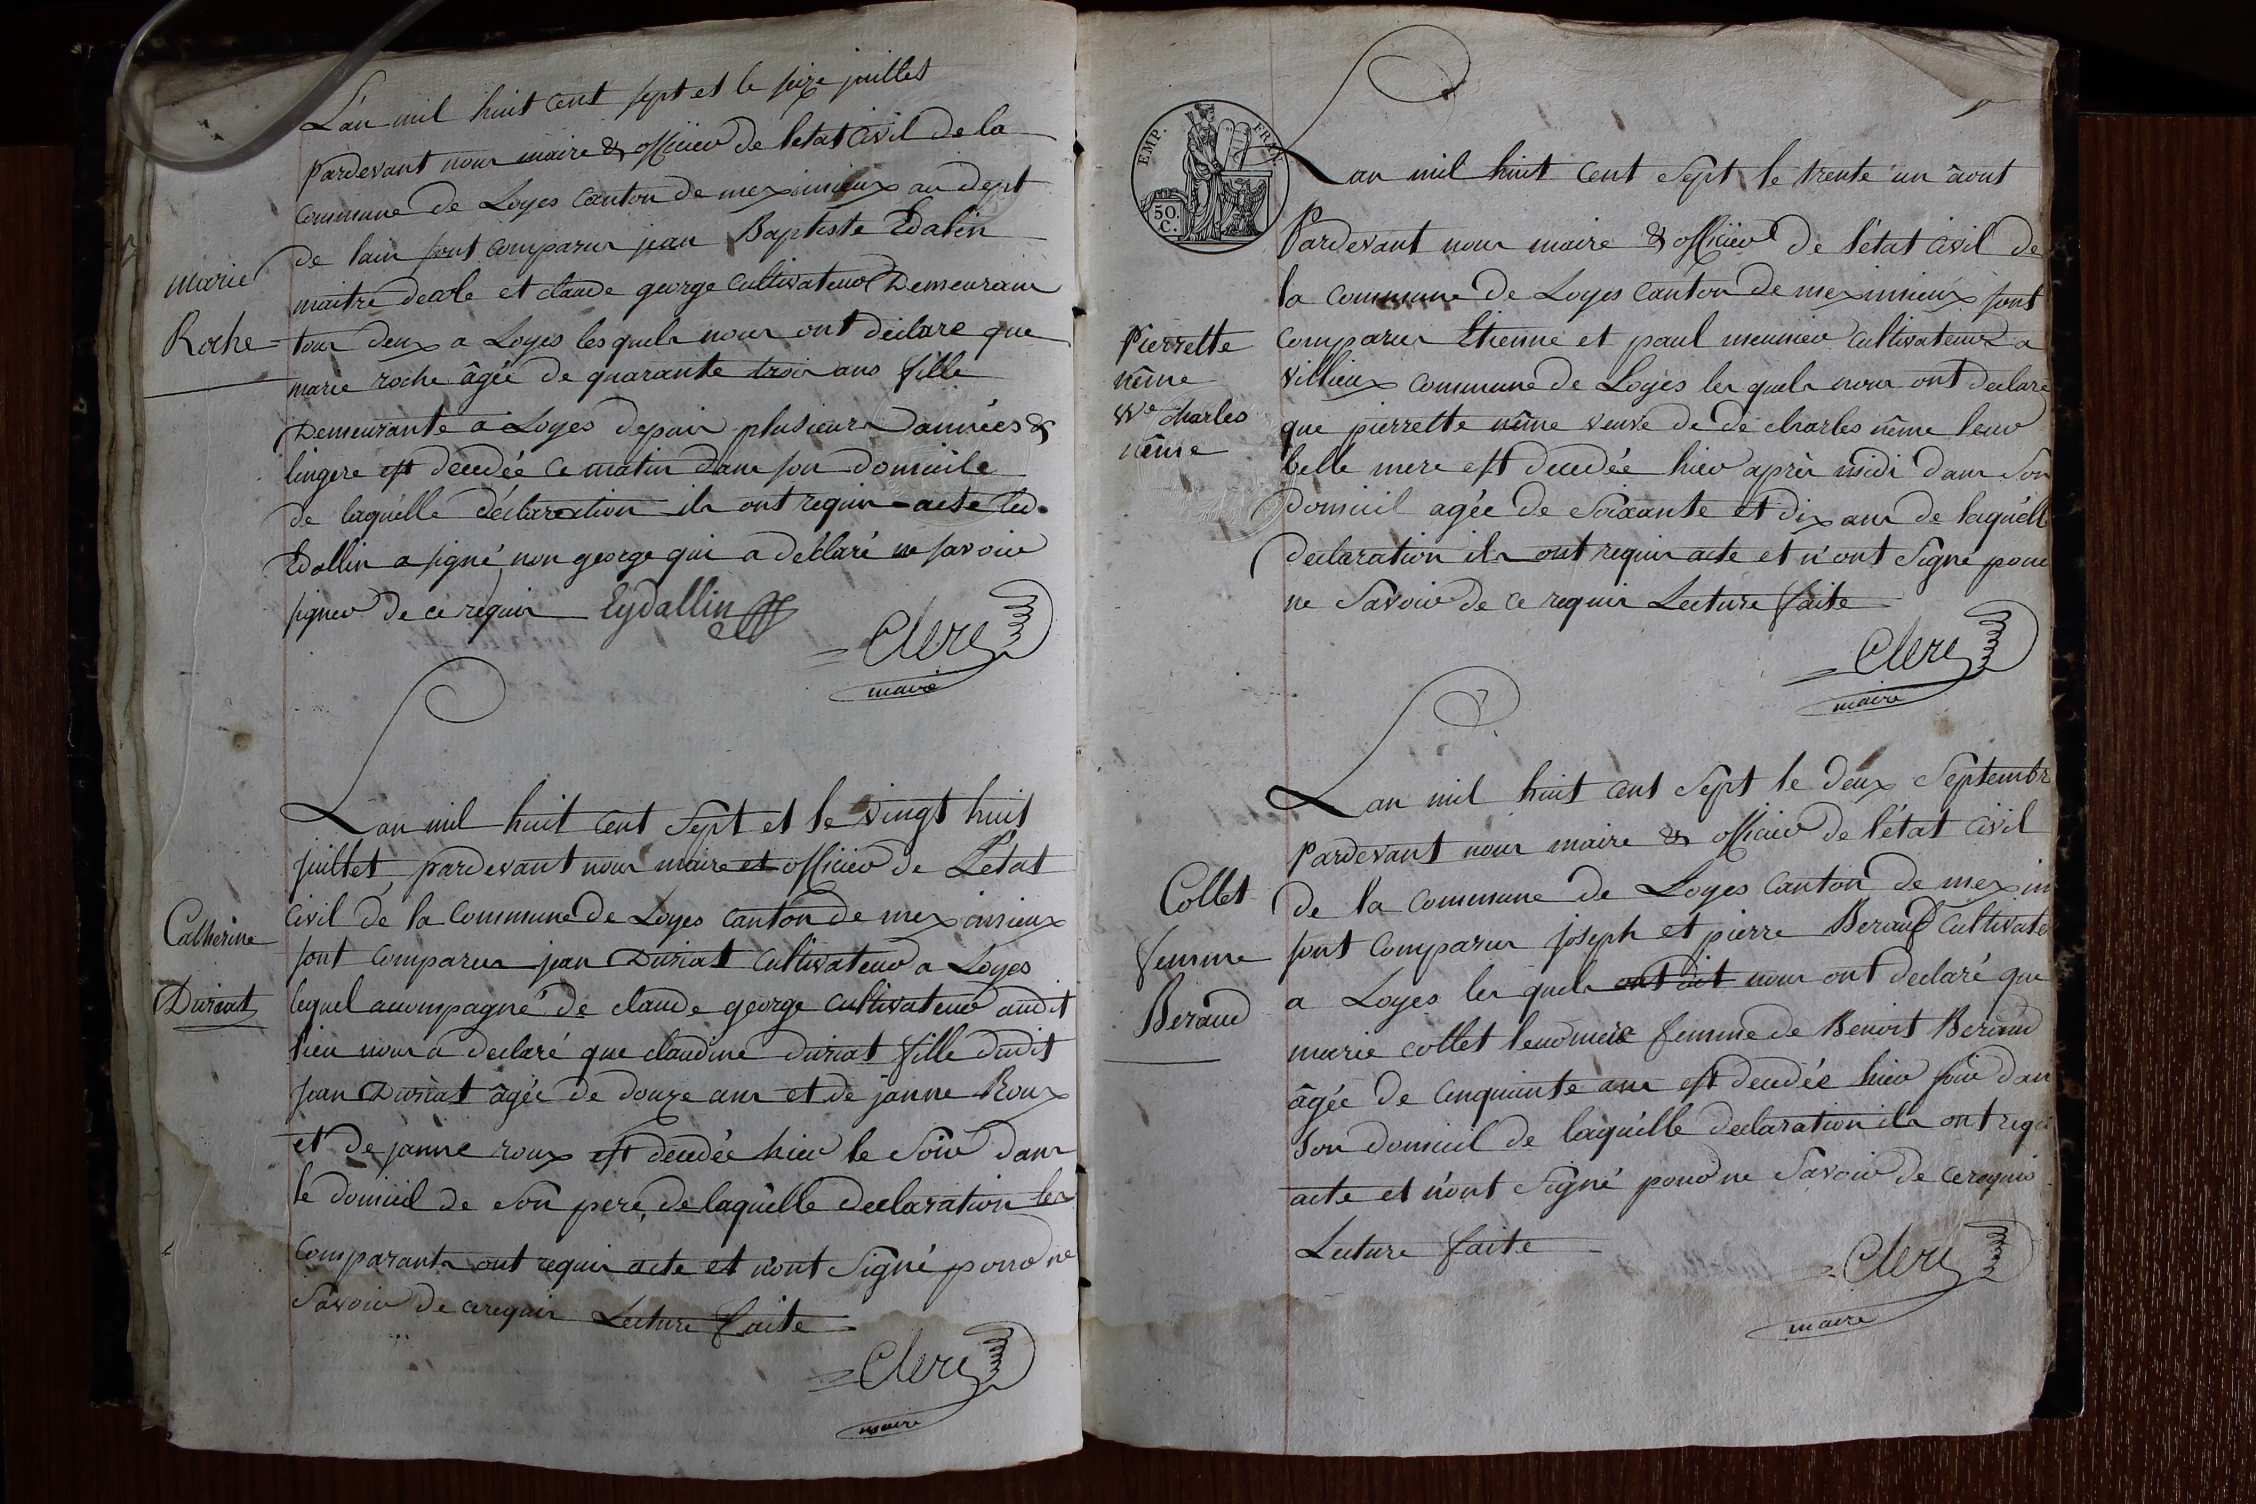 L'an mil huit cent sept et le seize juillet
pardevant nous maire & officier de letat civil de la
commune de Loyes canton de meximieux au dept
de lain sont comparus jean Baptiste Edalin
maitre decole et claude george cultivateur Demeurans
tous deux a Loyes lesquels nous ont declare que
marie roche âgée de quarante trois ans fille
Demeurante a Loyes depuis plusieurs Dannées &
lingere est decedée ce matin dans son domicile
de laquélle déclaration ils ont requis acte led.
Edallin a signé non george qui a déclaré ne savoir
signer de ce requis Eydallin
Clerc
maire
marie
Roche
L'an mil huit cent sept et le vingt huit
juillet pardevant nous maire et officier de L'état
civil de la commune de Loyes canton de meximieux
sont comparus jean Duriat cultivateur a Loyes
lequel acompagné de claude george cultivateur audit
lieu nous a declaré que claudine duriat fille dudit
jean Duriat âgée de douze ans et de janne Roux
et de janne roux est decedée hier le soir dans
le domicil de son pere, de laquélle declaration les
comparants ont requis acte et n'ont signé pour ne
savoir de ce requis Lecture faite
Clerc
maire
Catherine
Duriat
EMP. FRAN.
50.
C.
L'an mil huit cent sept le trente un âout
Pardevant nous maire & officier de l'état civil de
la commune de Loyes canton de meximieux sont
comparus Etienne et paul meunier cultivateurs a
villieux commune de Loyes les quels nous ont declare
que pierrette nême veuve de dé charles nême leur
belle mere est decedée hier après midi dans son
domicil agée de soixante et dix ans de laquélle
declaration ils ont requis acte et n'ont signé pour
ne savoir de ce requis Lecture faite
Clerc
maire
Pierrette
nême
Ve charles
nême
L'an mil huit cent sept le deux septembr
pardevant nous maire & officier de l'état civil
de la commune de Loyes canton de mexim
sont comparus joseph et pierre Beraud cultivate
a Loyes les quels ont dit nous ont declaré que
marie collet leur mere femme de Benoit Beraud
âgée de cinquante ans est decedée hier soir dan
son domicil de laquélle declaration ils ont requi
acte et n'ont signé pour ne savoir de ce requis
Lecture faite
Clerc
maire
Collet
femme
Beraud